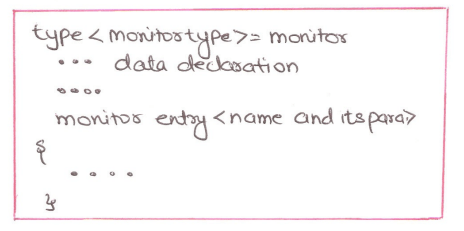 type <monitortype>= monitor
... data declaration
....
monitor entry <name and its para>
{
....
};